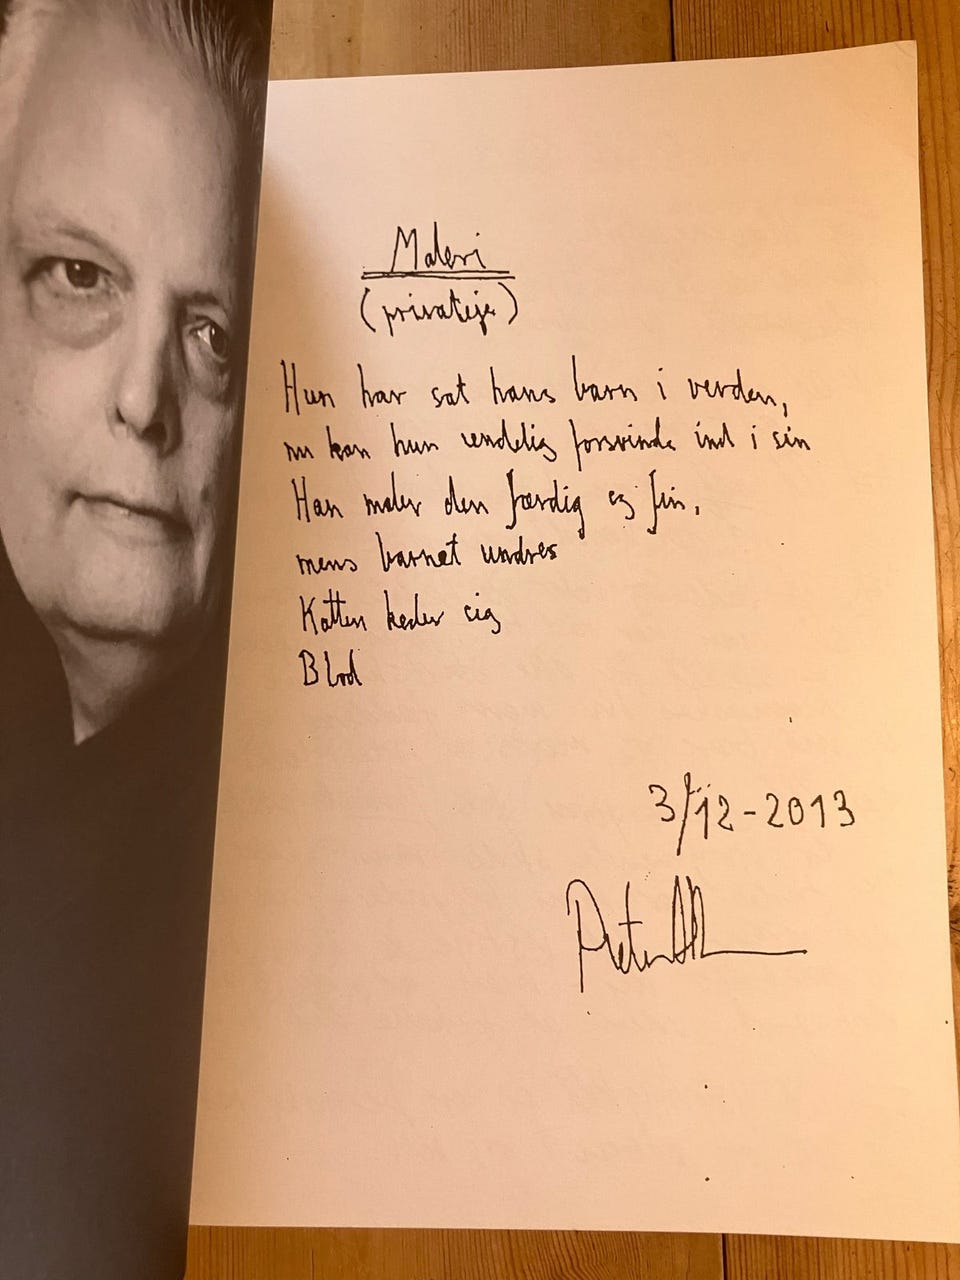 Maleri
(privateje)
Hun har sat hans barn i verden,
nu kan hun endelig forsvinde ind i sin
Han maler den færdig og fin,
mens barnet undres
Katten keder sig
Blod
3/12-2013